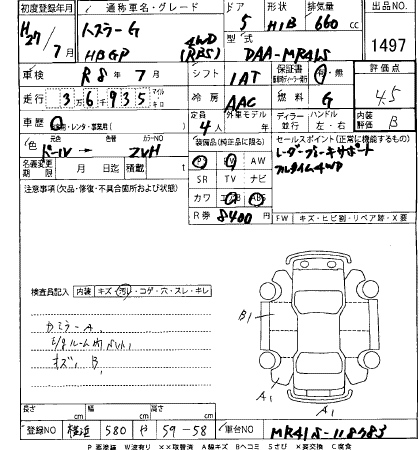 初度登録年月 通称車名・グレード ドア 形状 排気量 出品NO
H27/7月 ハスラーG HBGP 4WD (RBS) 5 HIB 660 cc 1497
型式 DAA-MR41S
車検 R8年7月 シフト 1AT 保証書 有・無 評価点 4.5
走行 36935 マイル km 冷房 AAC 燃料 G
車歴 自家用・レンタ・事業用 定員 4人 外車モデル ディーラー 並行 ハンドル 左・右 内装評価 B
色 パール 色替 カラーNO ZVH 装備品(純正品に限る) セールスポイント(正常に機能するもの)
レーダーブレーキサポート
フルタイム4WD
名義変更期限 月 日迄 積載 t PS PW AW
注意事項(欠品・修復・不具合箇所および状態) SR TV ナビ
カワ エアB ABS
R券 8400円 FW キズ・ヒビ割・リペア跡・X要
検査員記入 内装 キズ・汚レ・コゲ・穴・スレ・キレ
B1
カミラーA
キズ B
A1 A1
長さ cm 幅 cm 高さ cm
登録NO 横浜 580 や 59-58 車台NO MR41S-118383
P 要塗装 W波有リ ××取替済 A線キズ Bヘコミ Sさび ×要交換 C腐食